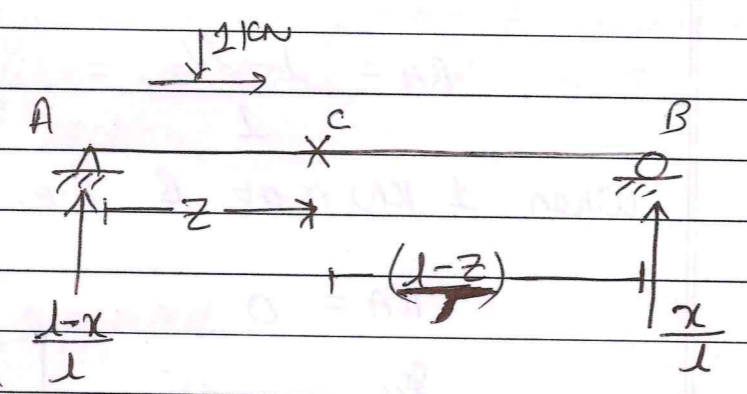 1 KN
A C B
z
(l-z)
l-x/l x/l